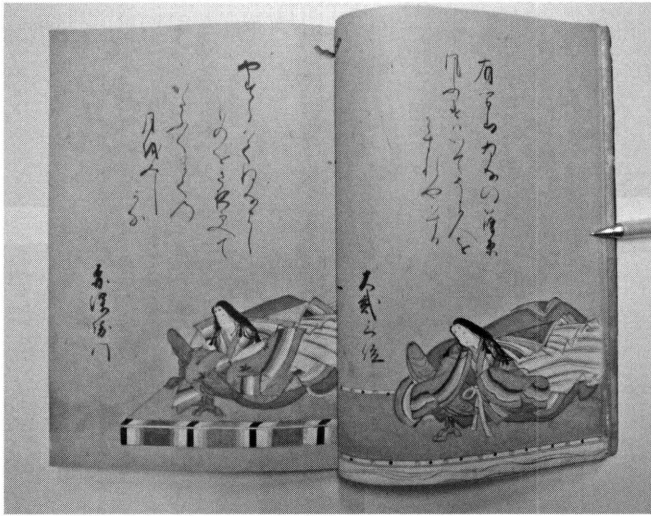 有馬山ゐなの篠原
風ふけはいてそよ人を
わすれやはする
大貳三位
やすらはてねなまし
ものを小夜更て
かたふくまての
月をみし
かな
赤染衛門